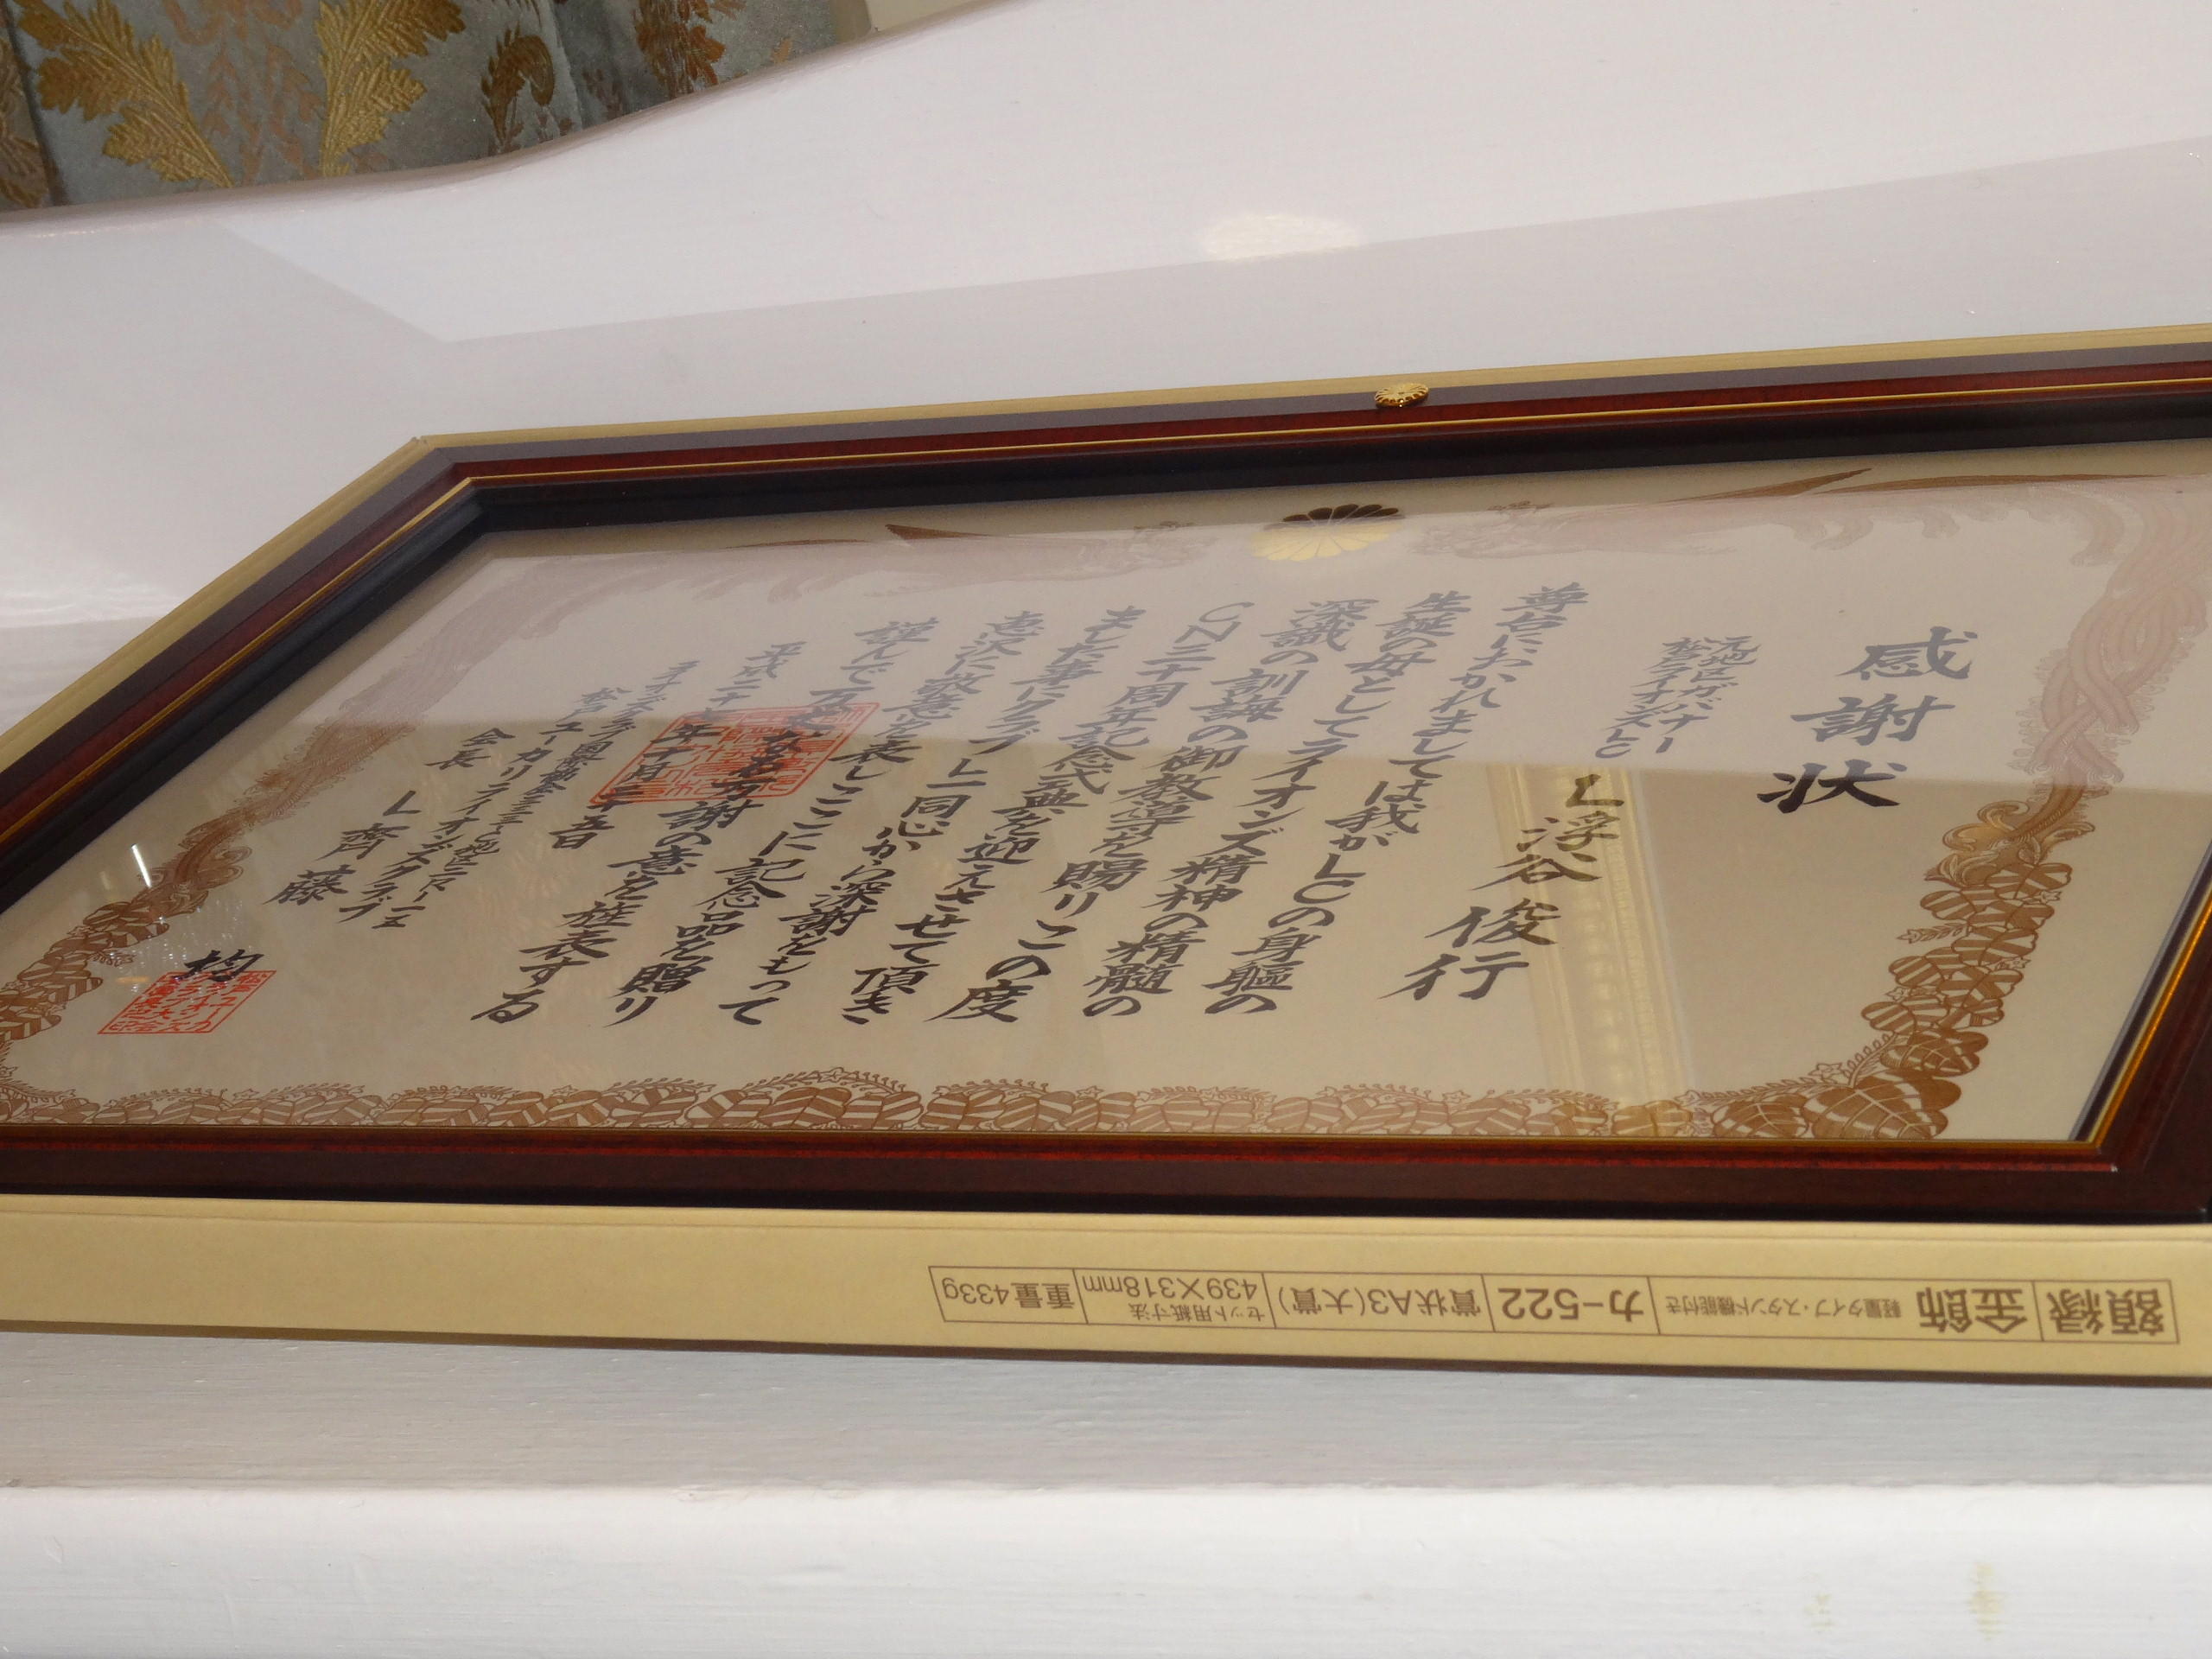 感謝状
元地区ガバナー
松戸ライオンズLC
L浮谷 俊行
尊台におかれましては我がLCの身軀の
生誕の母としてライオンズ精神の精髄の
深識の訓誨の御教導を賜りこの度
CN三十周年記念式典を迎えさせて頂き
ました事にクラブL一同心から深謝をもって
恵沢に敬意を表しここに記念品を贈り
謹んで 謝の意を旌表する
平成二十 年十月二十五日
松戸ユーカリライオンズクラブ
会長 L齊藤 均
額縁 金飾 軽量タイプ・スタンド機能付き カ-522 賞状A3(大賞) セット用紙寸法 439×318mm 重量433g